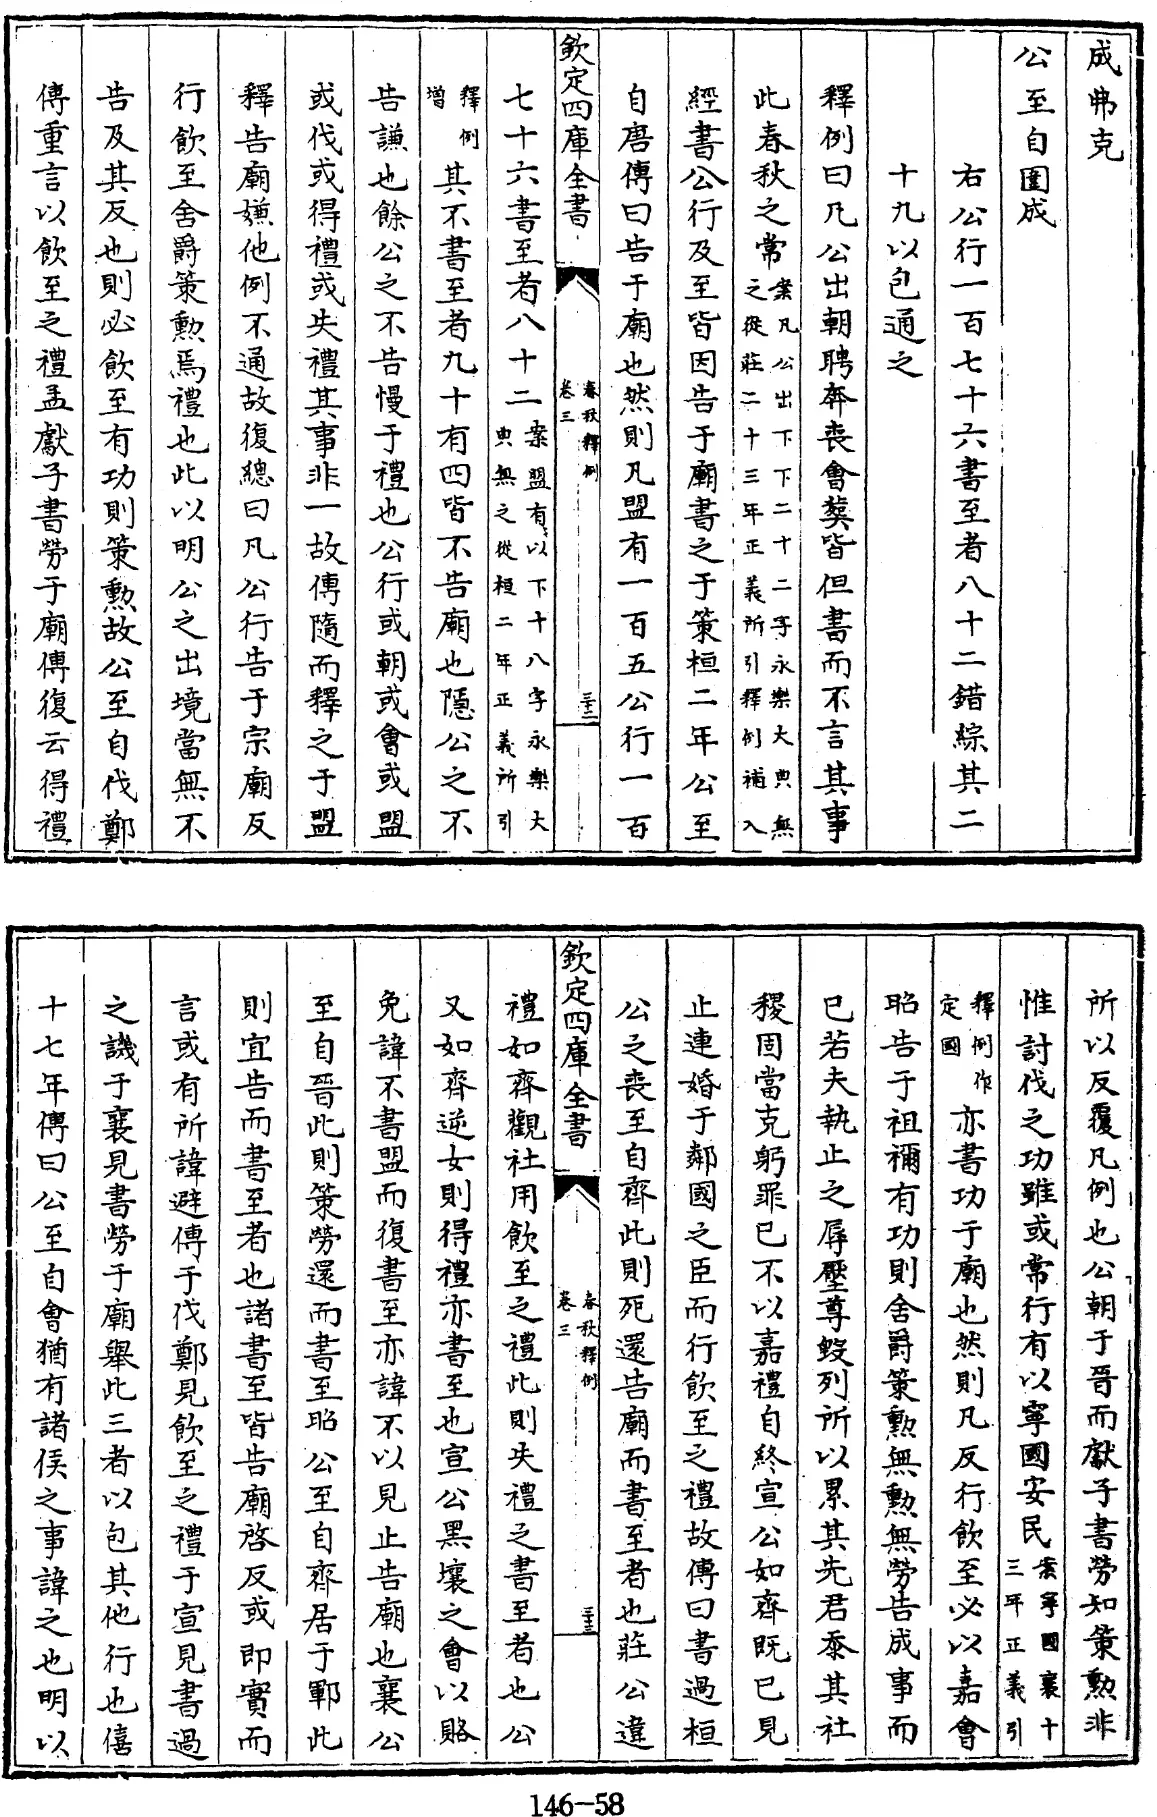 成弗克
公至自圍成
右公行一百七十六書至者八十二錯綜其二
十九以包通之
釋例曰凡公出朝聘奔喪會葬皆但書而不言其事
此春秋之常案凡公出下下二十二字永樂大典無
之從莊二十三年正義所引釋例補入
經書公行及至皆因告于廟書之于策桓二年公至
自唐傳曰告于廟也然則凡盟有一百五公行一百
欽定四庫全書
春秋釋例
卷三
三十二
七十六書至者八十二案盟有以下十八字永樂大
典無之從桓二年正義所引
釋例
增其不書至者九十有四皆不告廟也隱公之不
告謙也餘公之不告慢于禮也公行或朝或會或盟
或伐或得禮或失禮其事非一故傳隨而釋之于盟
釋告廟嫌他例不通故復總曰凡公行告于宗廟反
行飲至舍爵策勲焉禮也此以明公之出境當無不
告及其反也則必飲至有功則策勲故公至自伐鄭
傳重言以飲至之禮孟獻子書勞于廟傳復云得禮
所以反覆凡例也公朝于晉而獻子書勞知策勲非
惟討伐之功雖或常行有以寧國安民案寧國襄十
三年正義引
釋例作
定國亦書功于廟也然則凡反行飲至必以嘉會
昭告于祖禰有功則舍爵策勲無勲無勞告成事而
已若夫執止之辱壓尊毀列所以累其先君忝其社
稷固當克躬罪已不以嘉禮自終宣公如齊既已見
止連婚于鄰國之臣而行飲至之禮故傳曰書過桓
公之喪至自齊此則死還告廟而書至者也莊公違
欽定四庫全書
春秋釋例
卷三
三十三
禮如齊觀社用飲至之禮此則失禮之書至者也公
又如齊逆女則得禮亦書至也宣公黑壤之會以賂
免諱不書盟而復書至亦諱不以見止告廟也襄公
至自晉此則策勞還而書至昭公至自齊居于鄆此
則宜告而書至者也諸書至皆告廟啓反或即實而
言或有所諱避傳于伐鄭見飲至之禮于宣見書過
之譏于襄見書勞于廟舉此三者以包其他行也僖
十七年傳曰公至自會猶有諸侯之事諱之也明以
146-58